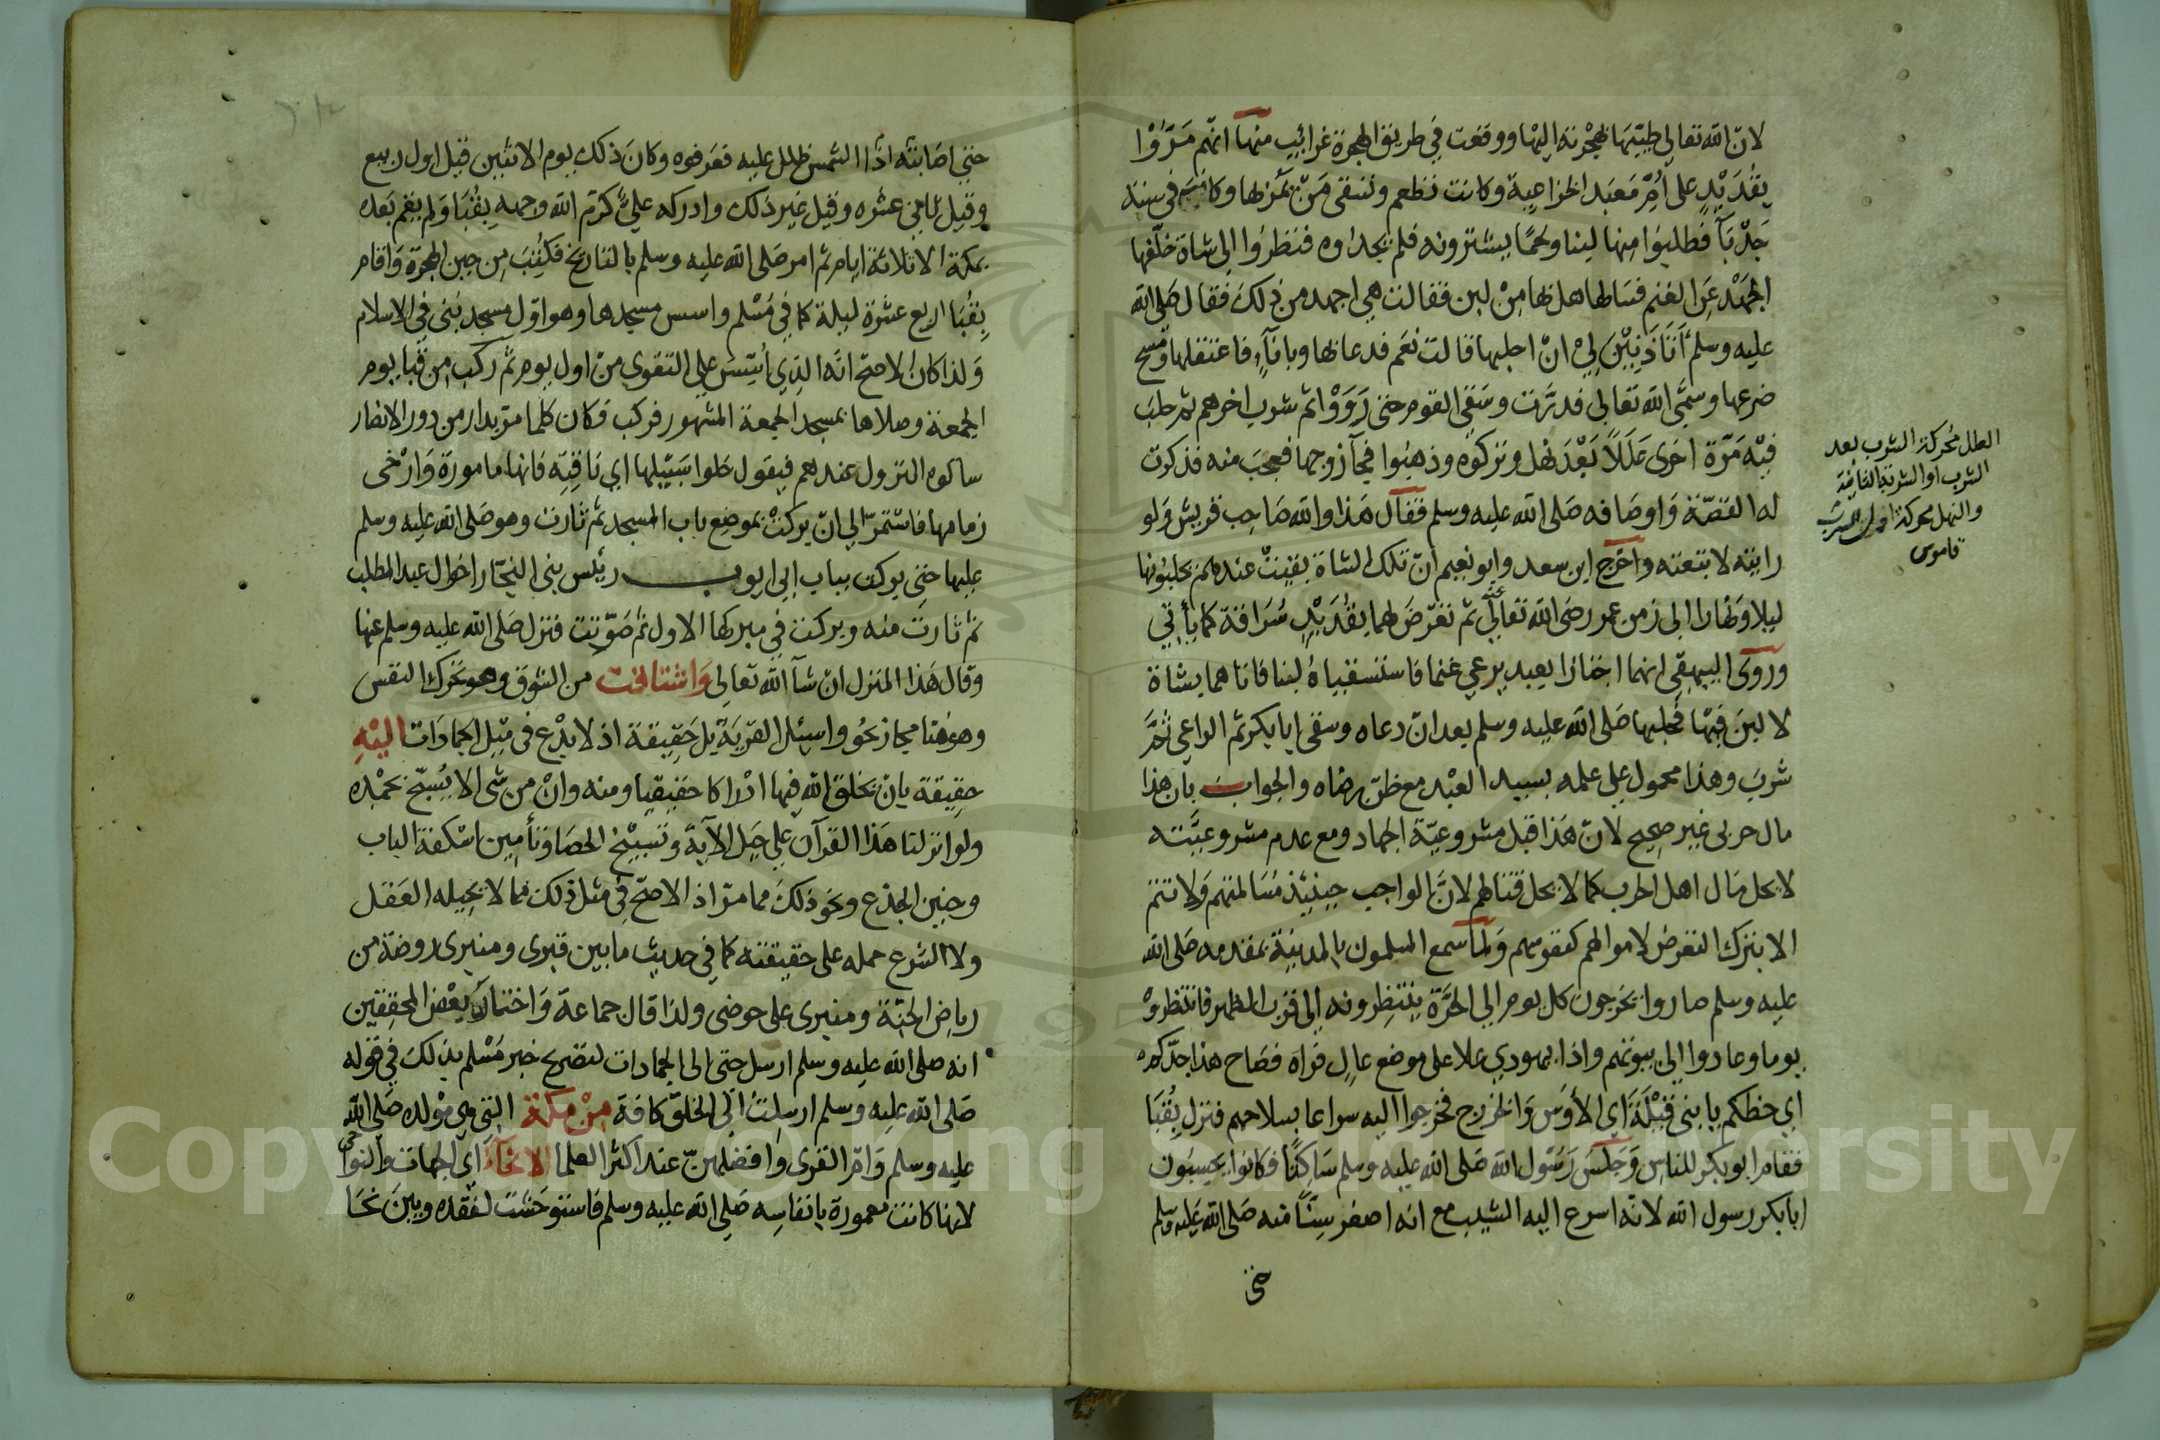 لان الله تعالى طيبها لهجرته اليها ووقعت في طريق الهجرة غرائب منها انهم مَرّوا
بقُدَيْدٍ على اُمّ مَعبَد الخزاعية وكانت تطعم وتسقى مَنْ يمر بها وكانت في سنة
جَدْبَآ فطلبوا منها لبنا ولحمًا يشترونه فلم يجدوه فنظروا الى شاة خلّفها
الجَهْد عَن الغنم فساٴلها هل بها مِنْ لبن فقالت هي اجهد من ذلك فقال صَلى الله
عليه وسلم اَتَاذَنِيْنَ لِي انْ احلبها قالت نعَم فدعا بها وباناٍۤء فاعتقلها ومسح
ضرعها وسمَّى الله تعالى فدرَّت وسَقى القوم حتى رَوَوْا ثم شرب اخرهم ثم حلب
فيْه مَرّة اخرى عَلَلًا بَعْدَ نَهل وتركوه وذهبوا فجآ زوجها فعجبَ منه فذكرت
له القصّة وَاوصَافه صَلى الله عليه وسلم فقال هَذا والله صَاحِب قريش وَلو
رايته لاتبعته واخرج ابن سعد وابو نعيم انّ تلك الشاة بقيَتْ عندهم يحلبونها
ليلا وَنهارا الى زمن عمر رضى الله تعالى عنه ثم تعَرّضَ لهما بقُدَيْدٍ سُرَاقة كما يأتي
ورَوَى البيهقي انهما اجتازا بعبد يرعى غنما فاستسقياهُ لبنا فاتاهما بشاة
لا لبنَ فيها فحلبها صَلى الله عليه وسلم بعد انْ دعاه وسقى ابا بكر ثم الراعي ثمَّ
شربَ وهذا محمول على علمه بسيد العبْد مع ظنّ رضاه والجواب بان هذا
مال حربى غير صحيح لانّ هَذا قبل مشروعيّة الجهاد ومع عدم مشروعيَّته
لا يحل مَال اهل الحرب كما لا يحل قتالهم لانَّ الواجب حينئذ مُسَالمتهم وَلا تتم
الا بترك التعرض لاموالهم كنفوسهم وَلما سمع المسلمون بالمدينة بمقدمه صَلى الله
عليه وسلم صاروا يخرجون كل يوم الى الحَرّة ينتظرونه الى قرْب الظهر فانتظروهْ
يوما وعادوا الى بيوتهم واذا يهودي علا على موضع عالٍ فرآه فصَاح هذا جدّكم
اي حظكم يا بنى قَيْلَةَ اي الأوَس وَالخزرج فخرجوا اليه سراعا بسلاحهم فنزل بِقُبَا
فقام ابو بكر للناس وَجَلسَ رَسُول الله صَلى الله عليه وسلم سَاكِتًا فكانوا يحسبُون
ابا بكر رسول الله لانّه اسرع اليه الشيب مع انه اصغر سِنًّا منه صَلى الله عليه وسلم
حتى
العلل محركة الشرب بعد
الشرب او الشربة الثانية
والنهل محركة اول الشرب
قاموس
حتى اصَابته اذًا الشمس ظلل عليه فعَرفوه وكانَ ذلك يوم الاثنين قيل اول ربيع
وقيل ثاني عشره وقيل غير ذلك وادركه عليٌ كرّم الله وجهه بِقُبَا وَلم يقم بَعده
بمكة الا ثلاثة ايام ثم امر صَلى الله عليه وسلم بالتاريخ فكُتِبَ من حين الهجرة وَاقام
بِقُبَا اربع عشرة ليلة كما في مُسْلم واسس مسجدها وهو اوّل مسجد بُنى في الاسلام
وَلذا كانَ الاصَح انّه الذي اُسِّسَ على التقوى منْ اول يوم ثم ركب من قبا يوم
الجمعة وصلاها بمسجد الجمعة المشهور فركب فكان كلما مرّ بدار من دور الانصار
ساٴلوه النزول عندهم فيقول خَلوا سَبيْلها اي نَاقتِه فانها مامورة وَارْخى
زمامها فاستمرّ الى انْ بركتْ بموضع باب المسجد ثم ثارت وهو صَلى الله عليه وسلم
عليها حتى بركت بباب ابي ايوب رئيس بنى النجّار اخوال عبد المطلب
ثم ثارت منه وبركت في مبركها الاول ثم صَوَّتت فنزل صَلى الله عليه وسلم عنها
وقال هَذا المَنزل ان شآ الله تعالى وَاشتاقت من الشوق وهو تحرك النفس
وهو هنا مجاز نحو واسئل القرية بل حَقيقة اذ لا بِدْع في مَيْل الجمادَات اليْهِ
حقيقة بان يخلق الله فيها ادْراكا حَقيقيا ومنه وانْ من شي الا يُسبّح بحمْده
ولو انزلنا هَذا القرآن على جَبل الآية وَتسبيْح الحصَا وتأمين اسْكفة الباب
وحنين الجذع ونحو ذلك مما مرّ اذ الاصَحّ في مثل ذلك مما لا يحيله العَقل
ولا الشرع حمله على حقيقته كما في حديث ما بين قبرى ومنبرى روضة من
رياض الجنة ومنبرى على حوضى ولذا قال جماعة وَاختاره بعْض المحققين
انه صلى الله عليه وسلم ارسل حتى الى الجمادات لتصريح خبر مُسْلم بذلك في قوله
صَلى الله عليه وسلم ارسِلتُ الى الخلق كافة مِنْ مكة التى هي مَوْلده صَلى الله
عليه وسلم وَامّ القرى وَافضلهنّ عند اكثر العلما الانحآءُ اي الجهات والنواحى
لانها كانت معمورة بانفاسِه صَلى الله عليه وسلم فاستوحَشت لفقده وبين نحَا